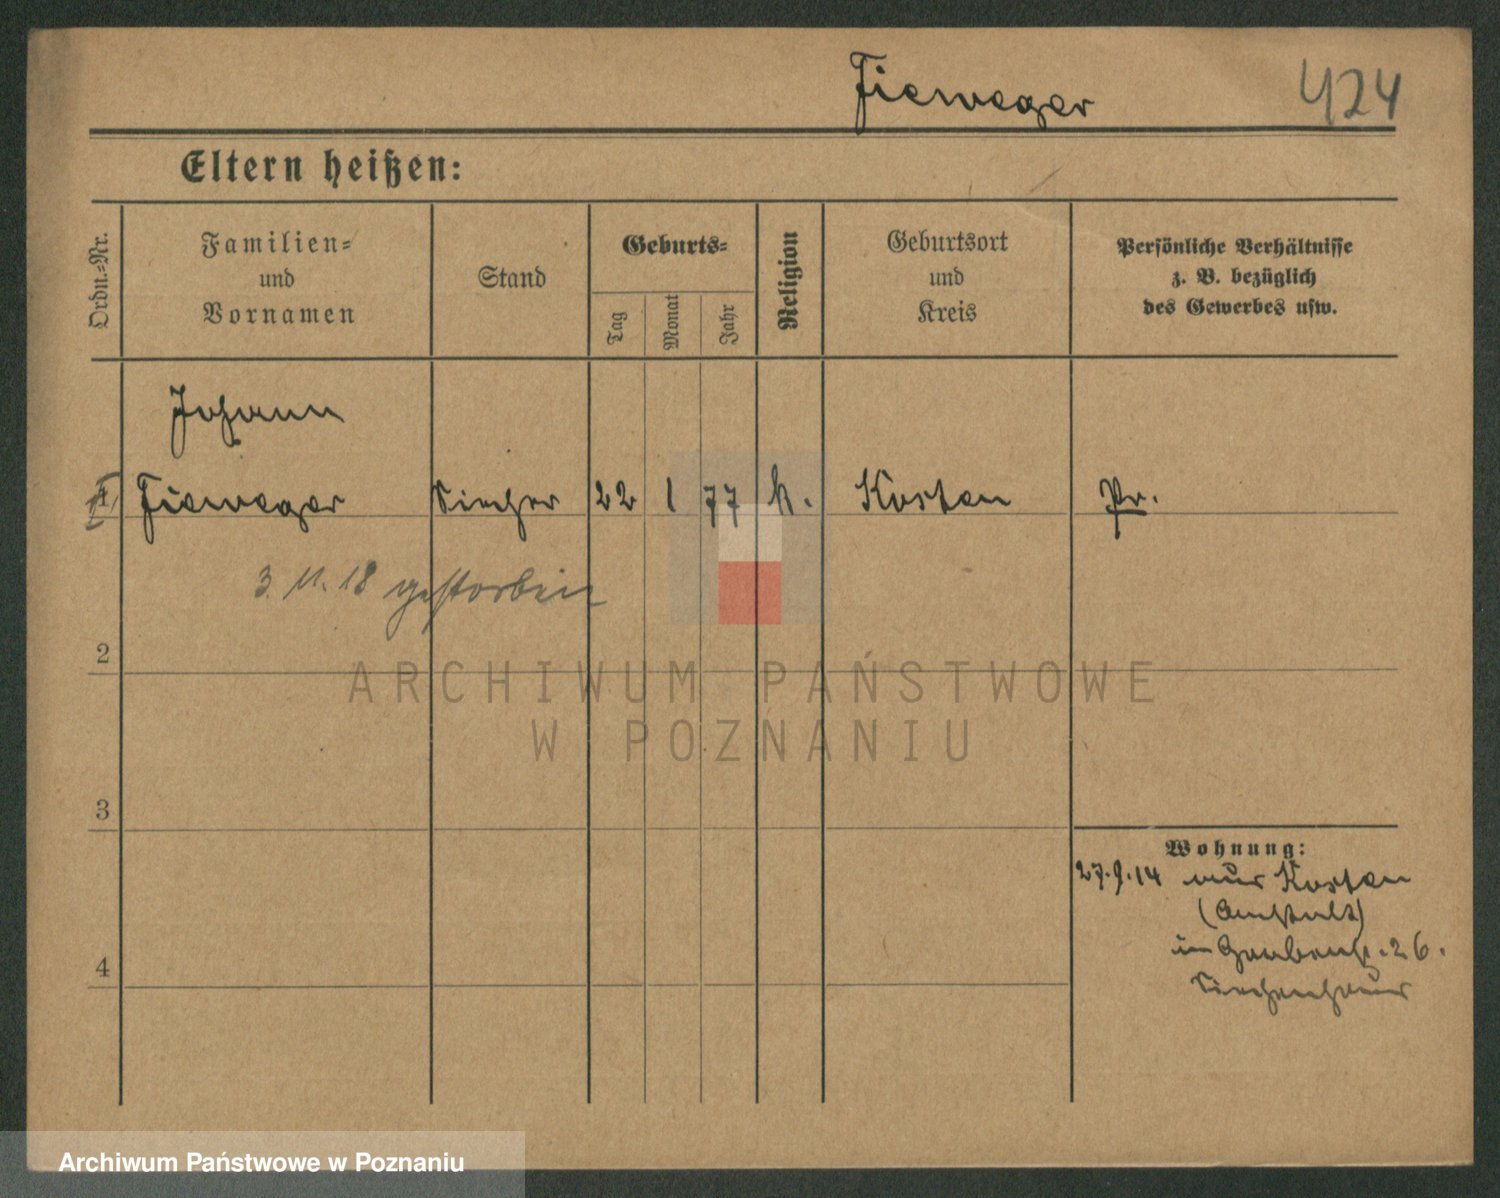 Fieweger 424
Eltern heißen:
Ordn.-Nr.
Familien- und Vornamen
Stand
Geburts-
Tag
Monat
Jahr
Religion
Geburtsort und Kreis
Persönliche Verhältnisse z. B. bezüglich des Gewerbes usw.
Johann
1 Fieweger Siecher 22 1 77 k. Kosten Pr.
3. 11. 18 gestorben
2
ARCHIWUM PAŃSTWOWE
W POZNANIU
3
Wohnung:
27.9.14 aus Kosten
(Anstalt)
in Grabenstr. 26.
4
Siechenhaus
Archiwum Państwowe w Poznaniu